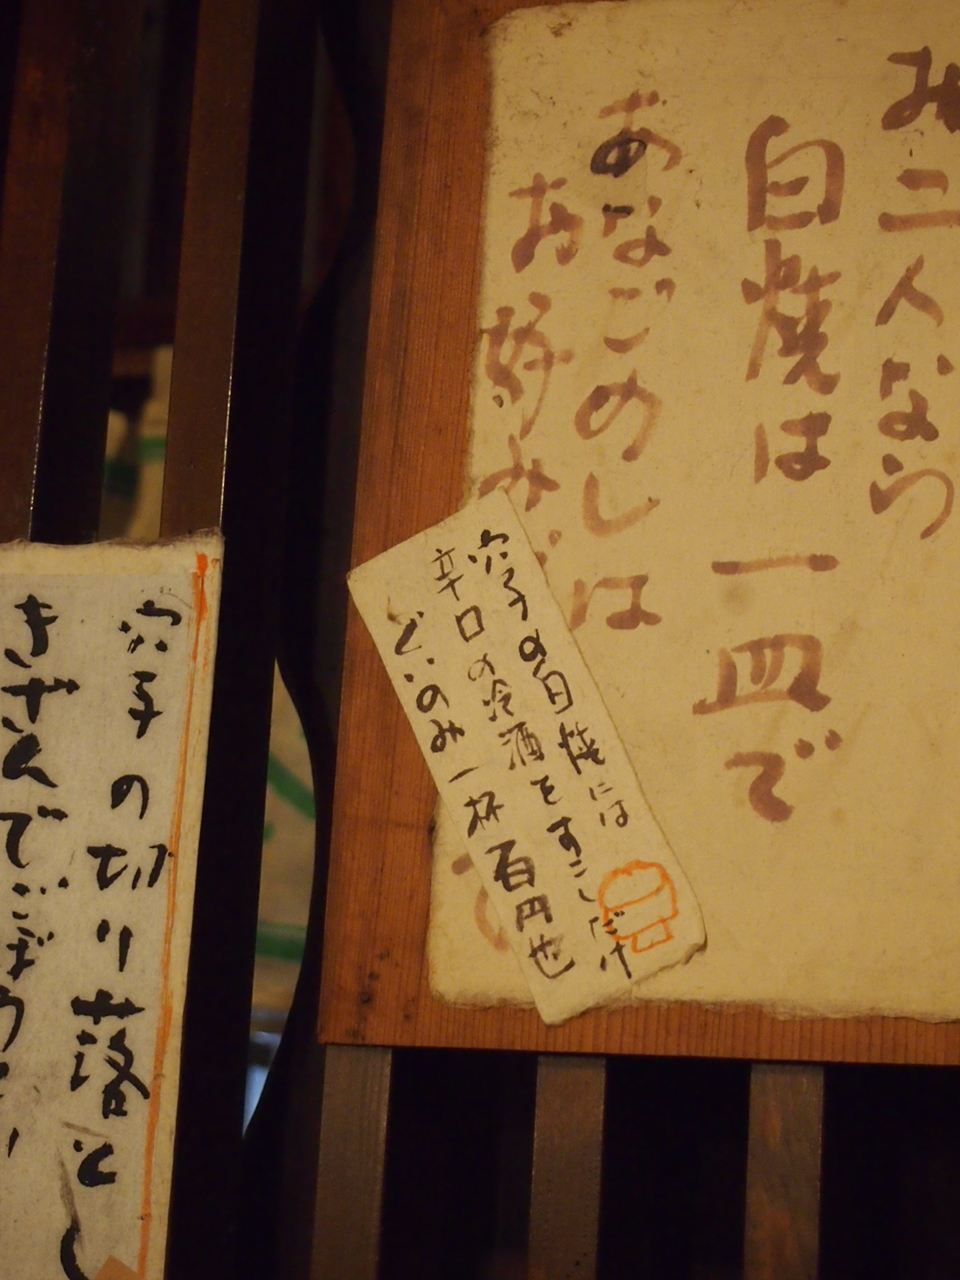 お二人なら
白焼は一皿で
あなごめしは
お好み
穴子の白焼には
辛口の冷酒をすこしだけ
ぐいのみ一杯百円也
穴子の切り落とし
きざんでごぼう